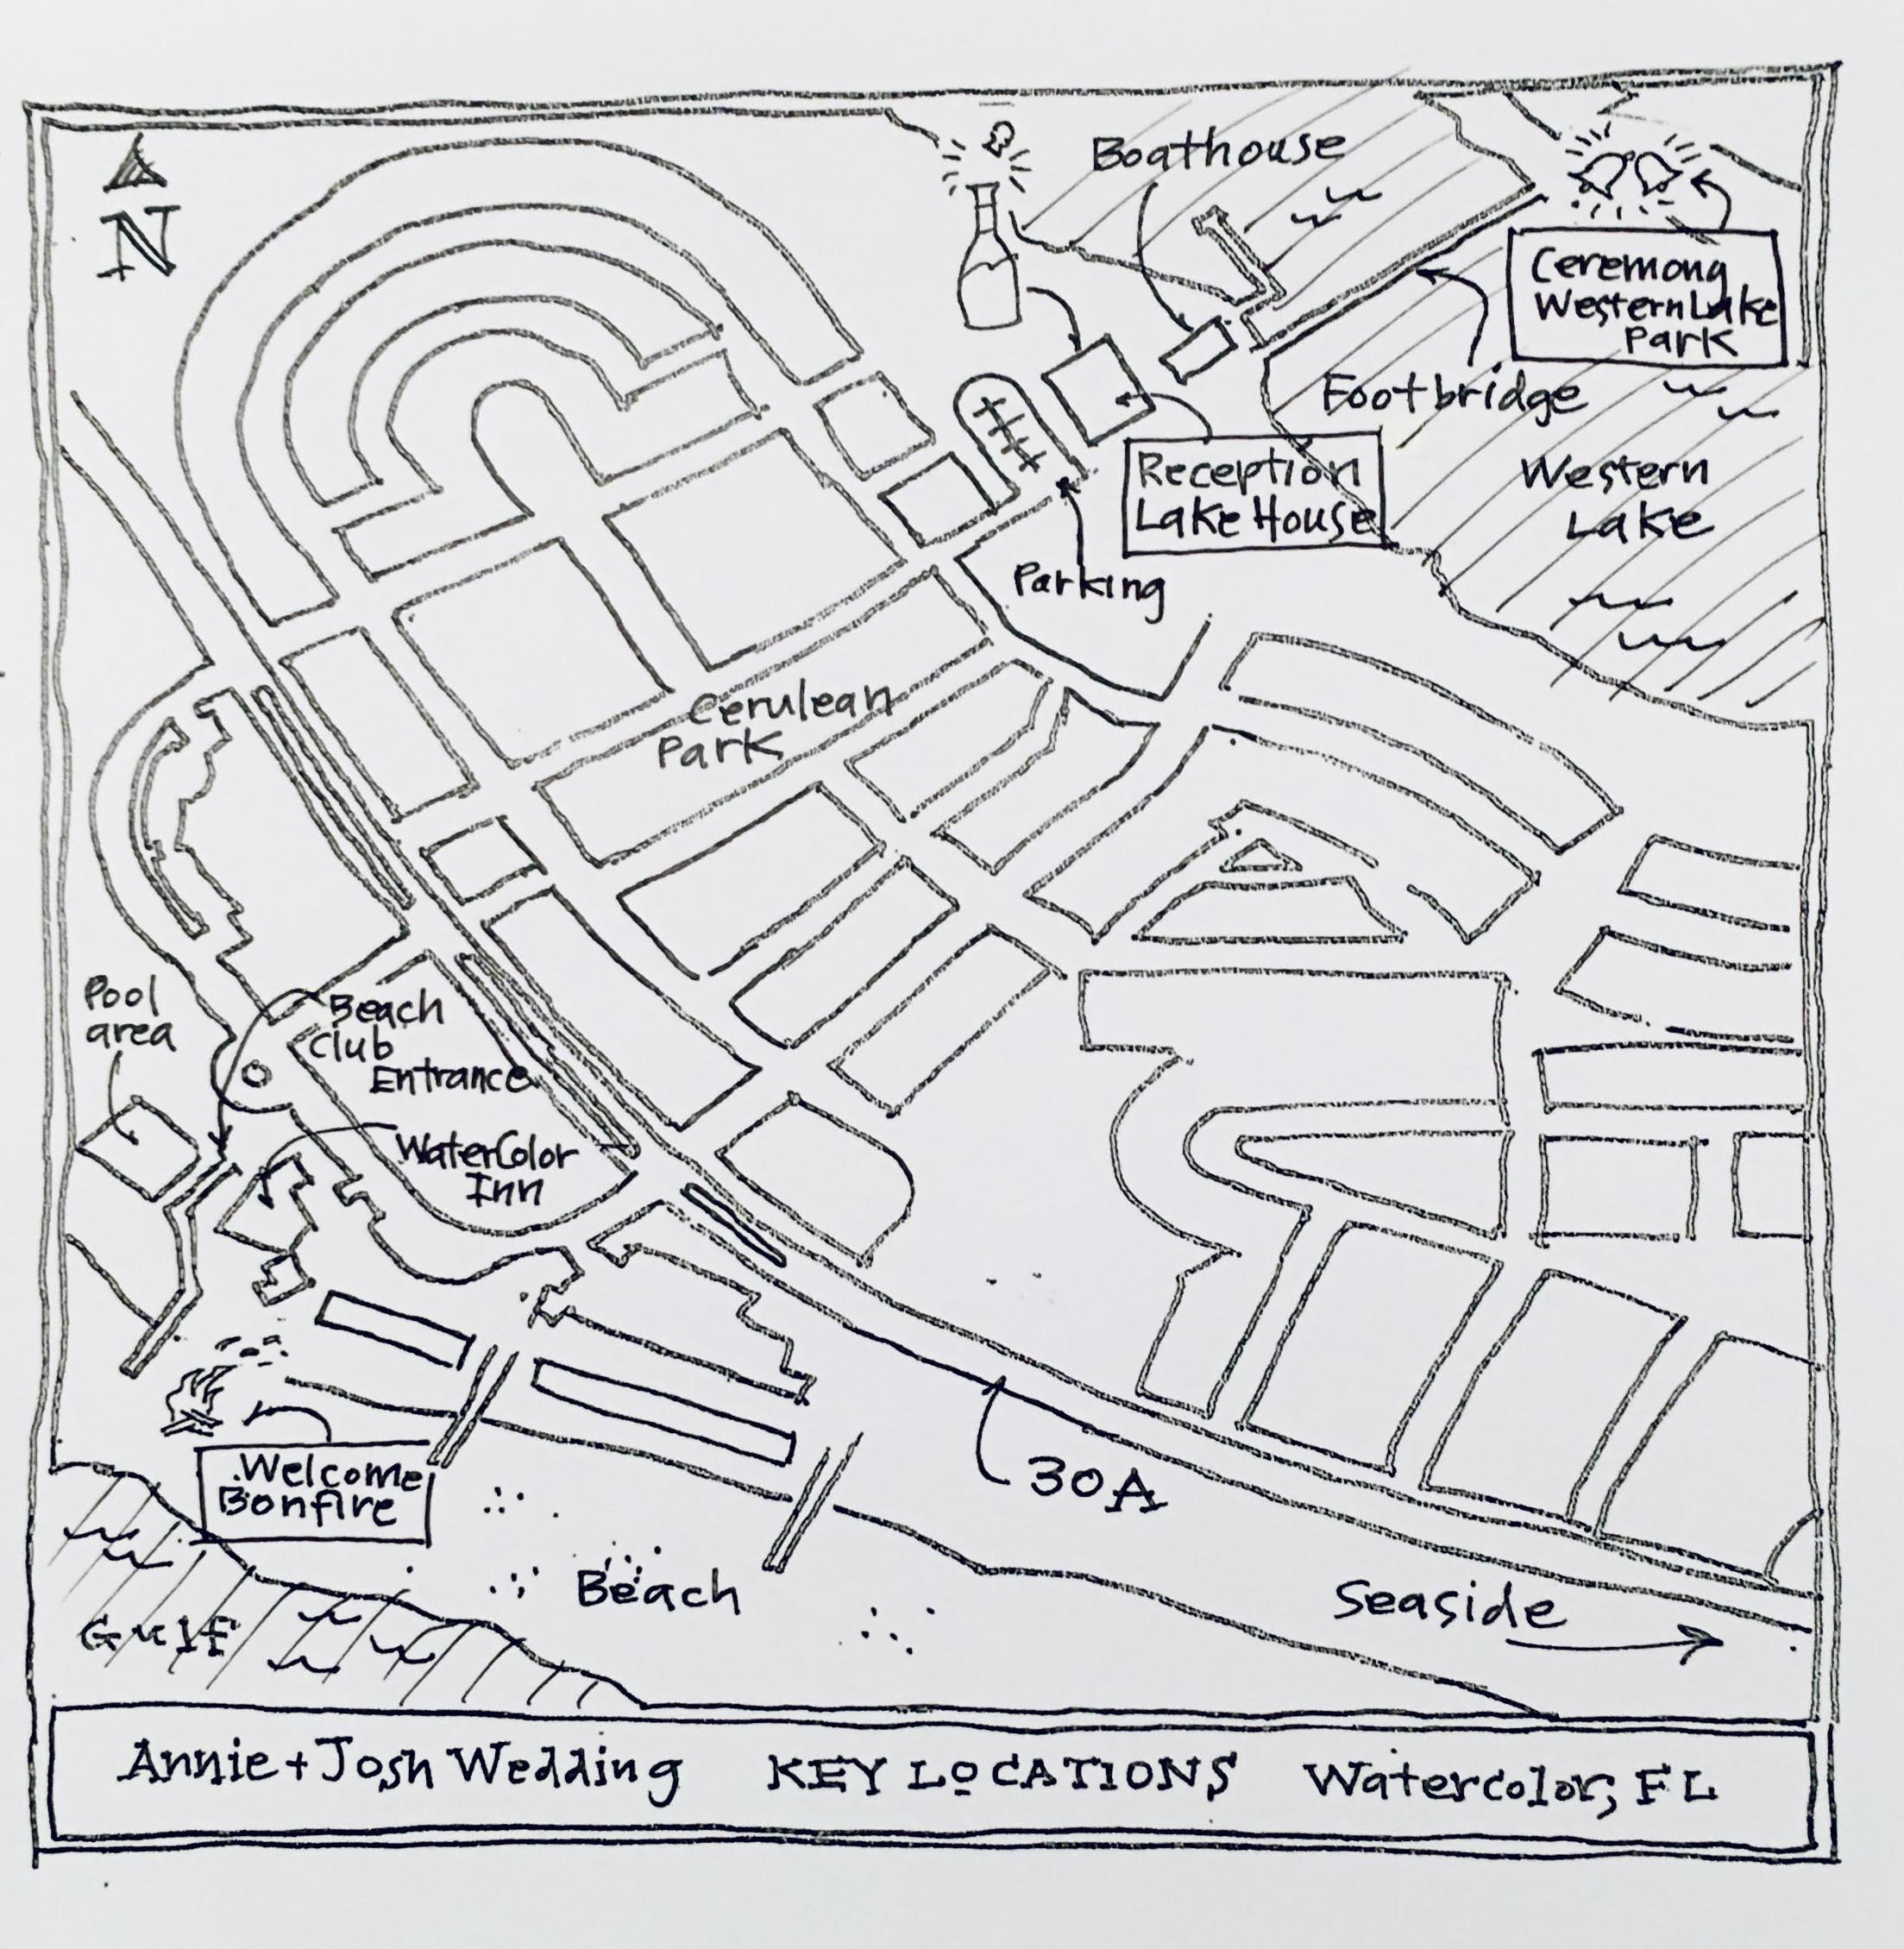 N
Boathouse
Ceremony
Western Lake
Park
Footbridge
Reception
Lake House
Western
Lake
Parking
Cerulean
Park
Pool
area
Beach
Club
Entrance
WaterColor
Inn
Welcome
Bonfire
30A
Beach
Seaside
Gulf
Annie + Josh Wedding KEY LOCATIONS Watercolor, FL